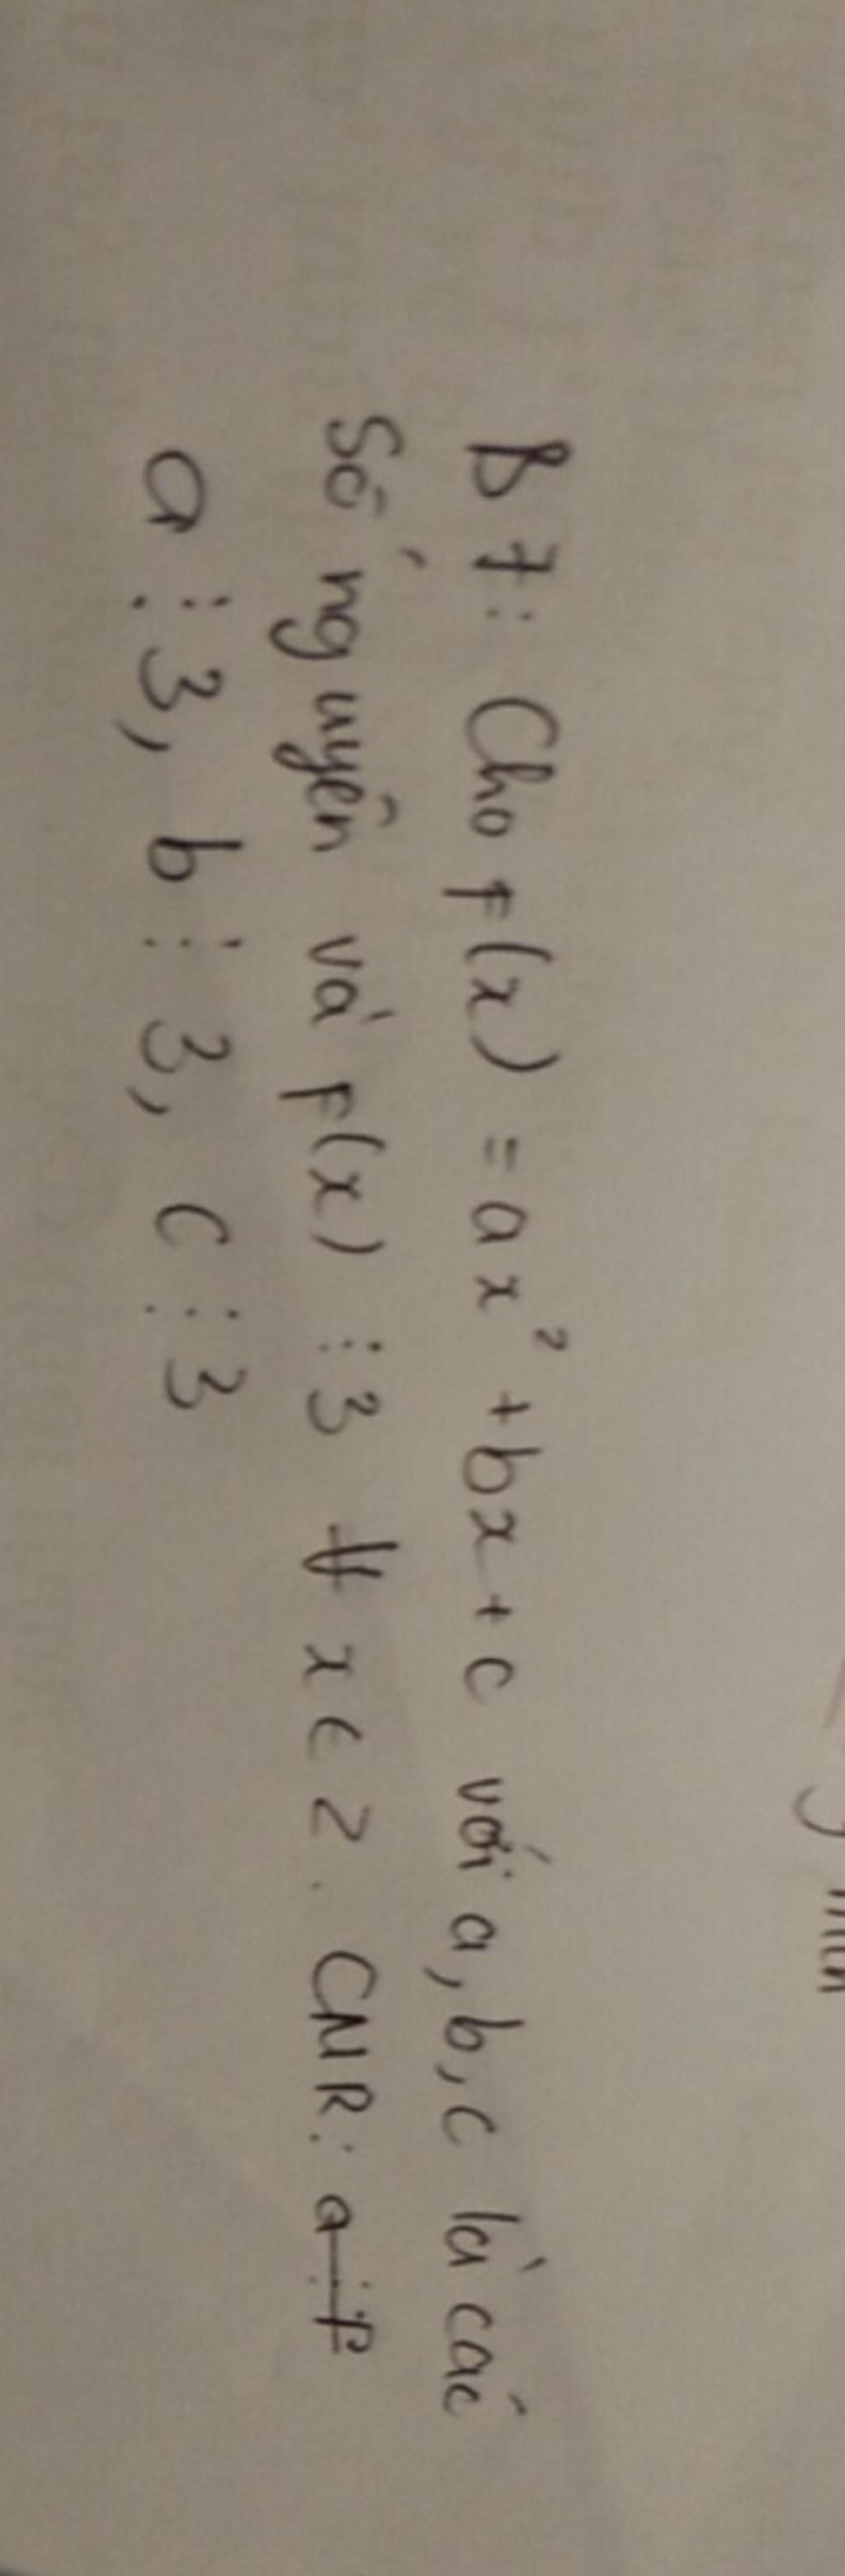 B7: Cho F(x) = ax² + bx + c với a, b, c là các
Số nguyên và F(x) ⋮ 3 ∀ x ∈ Z. CMR:
a ⋮ 3, b ⋮ 3, c ⋮ 3